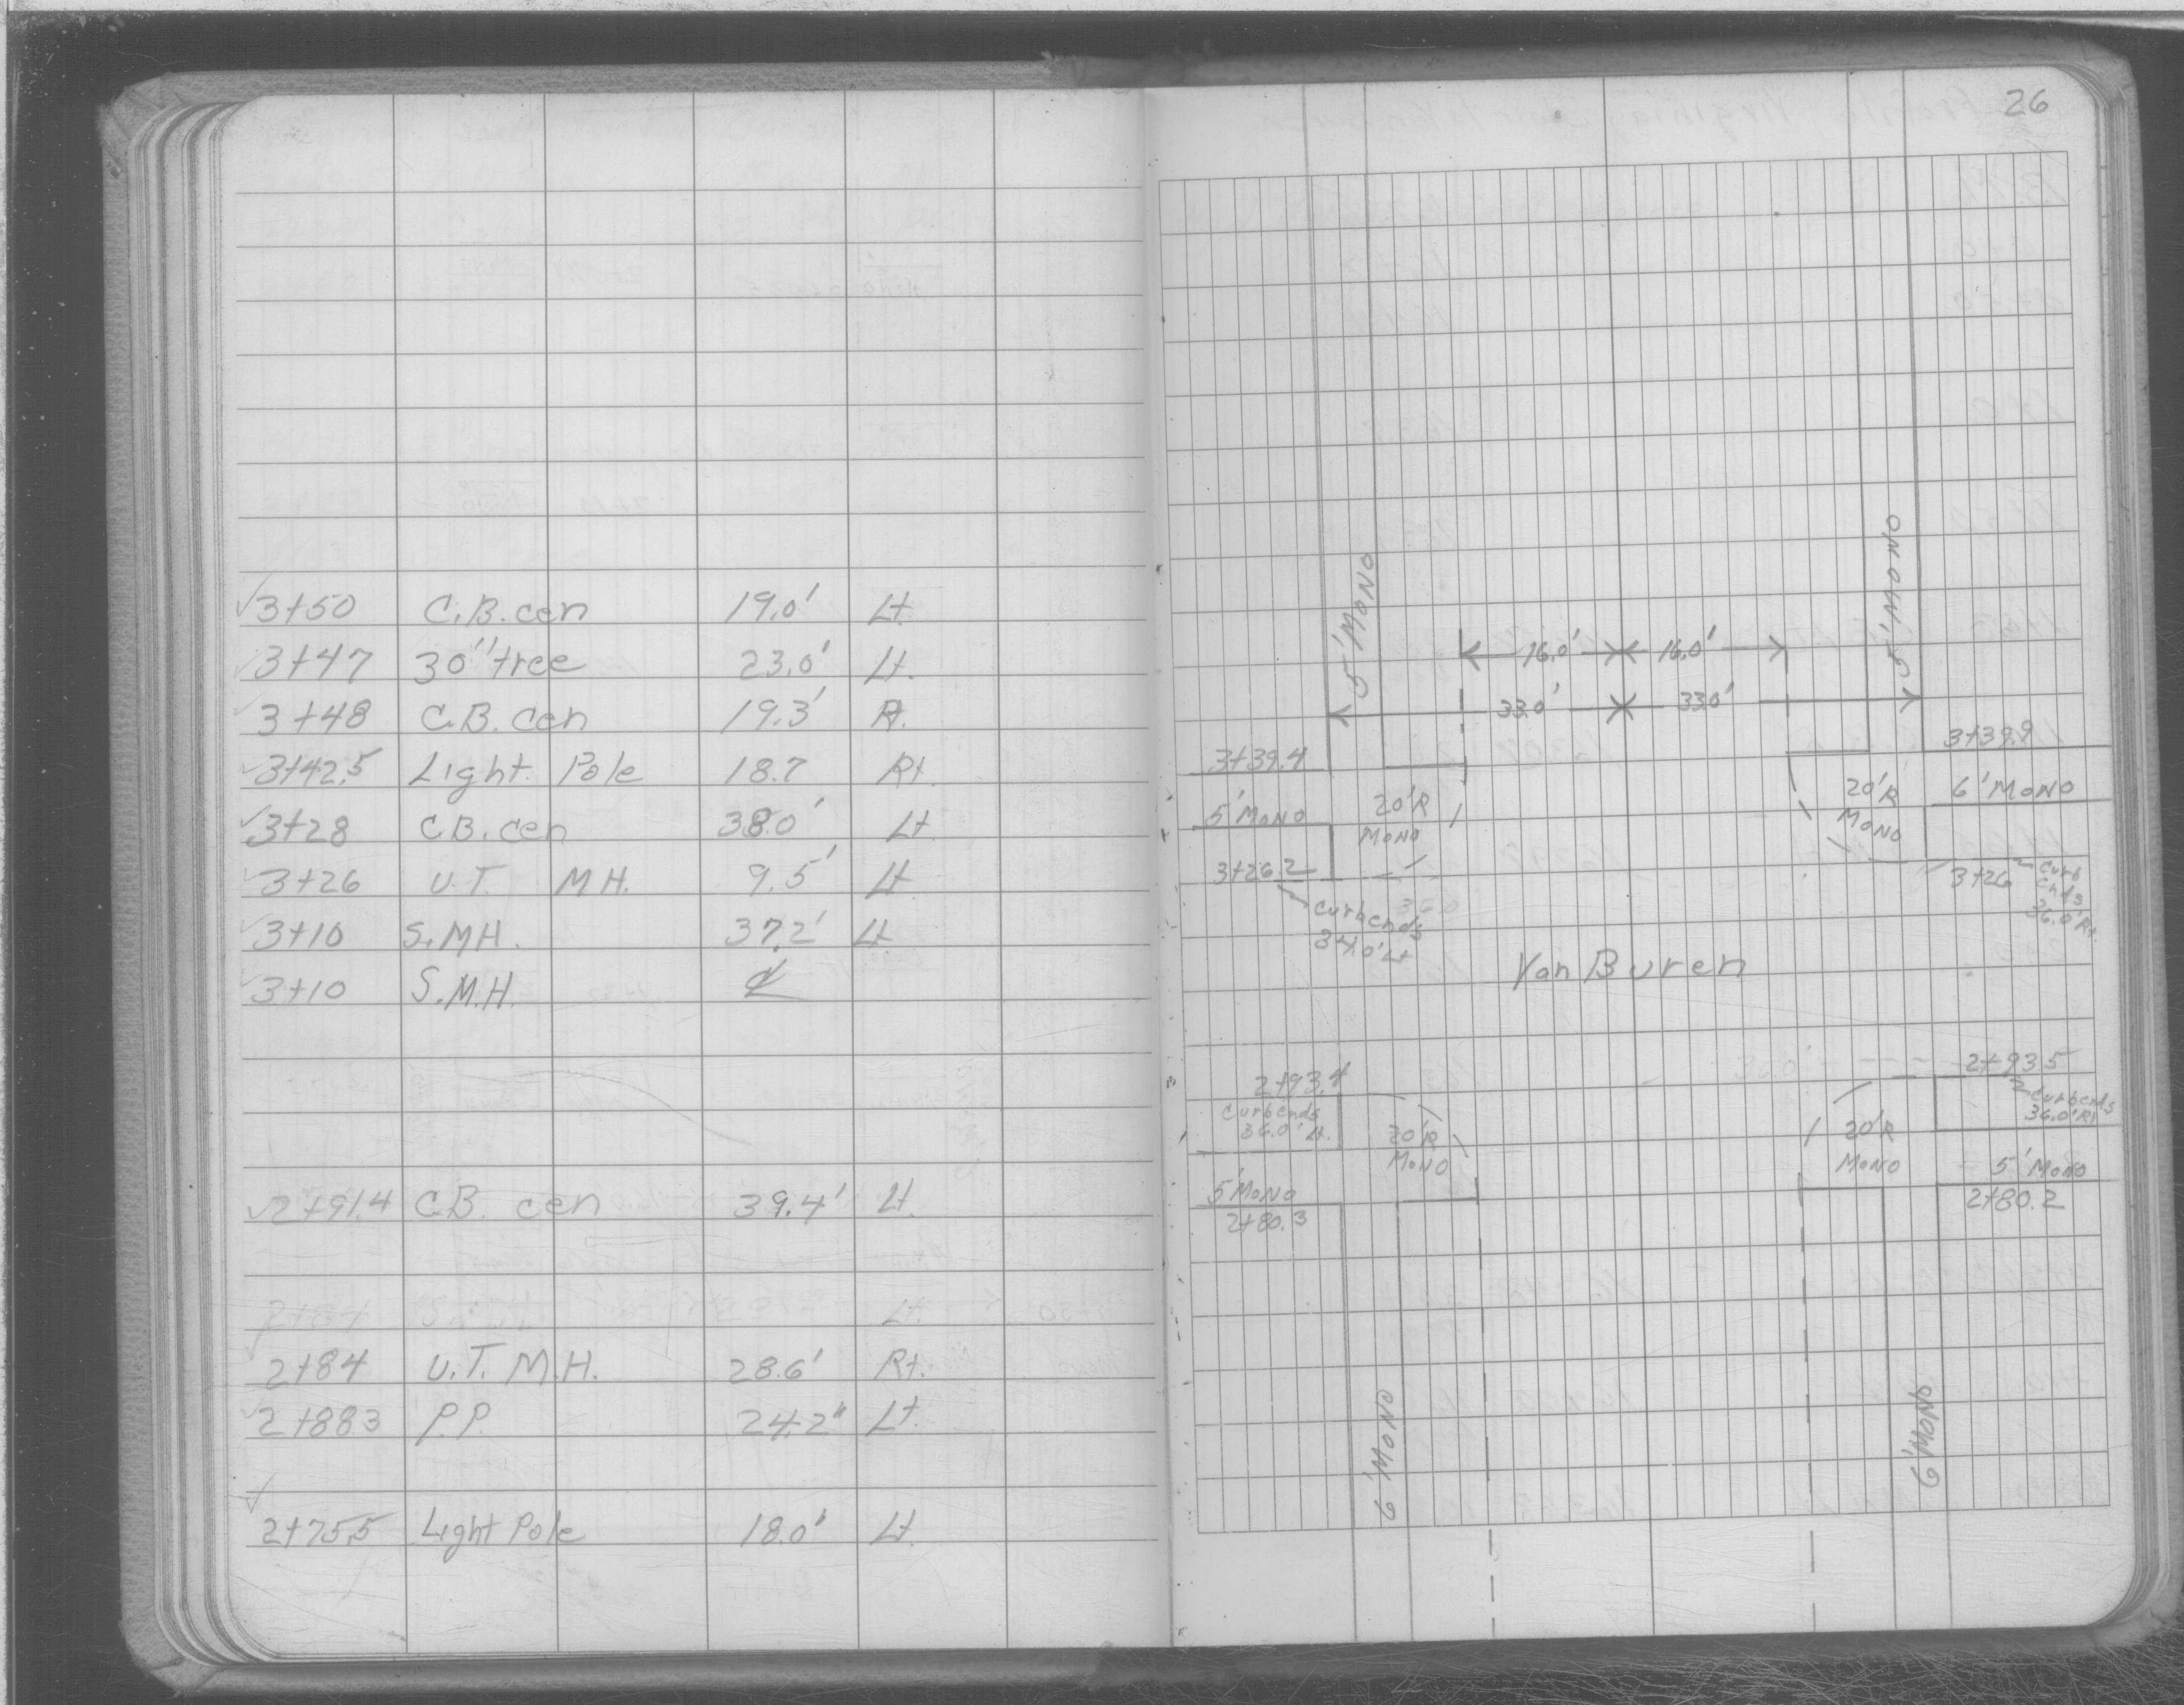 26
✓3+50 C.B. cen 19.0' Lt.
✓3+47 30" tree 23.0' Lt.
✓3+48 C.B. cen 19.3' Rt.
✓3+42.5 Light Pole 18.7 Rt.
✓3+28 C.B. cen 38.0' Lt
✓3+26 U.T. M H. 9.5' Lt
✓3+10 S.M.H. 37.2' Lt
✓3+10 S.M.H. ℄
✓2+91.4 C.B. cen 39.4' Lt.
✓2+84 U.T. M.H. 28.6' Rt.
✓2+88.3 P.P. 24.2" Lt.
✓2+75.5 Light Pole 18.0' Lt.
5' MONO
5' MONO
16.0' 16.0'
33.0' 33.0'
3+39.4
3+39.9
5' MONO
20'R
MONO
20'R
MONO
6' MONO
3+26.2
curb ends
34.0' Lt
3+26
curb
ends
36.0' Rt.
Van Buren
2+93.4
curb ends
36.0' Lt.
20'R
MONO
5' MONO
2+80.3
2+93.5
curb ends
36.0' Rt
20'R
MONO
5' MONO
2+80.2
6' MONO
6' MONO